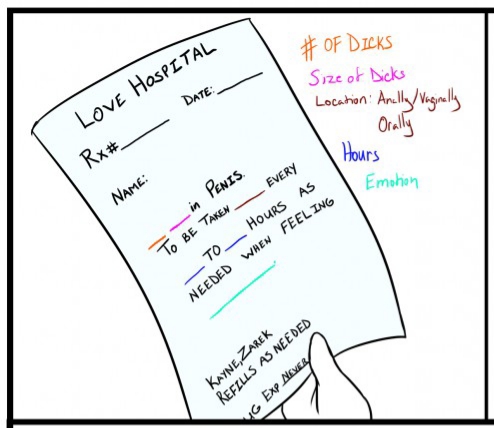 LOVE HOSPITAL
Rx# DATE:
NAME:
in PENIS.
TO BE TAKEN EVERY
TO HOURS AS
NEEDED WHEN FEELING
KAYNE, ZAREK
REFILLS AS NEEDED
UG EXP NEVER
# OF DICKS
Size of Dicks
Location: Anally/Vaginally
Orally
Hours
Emotion